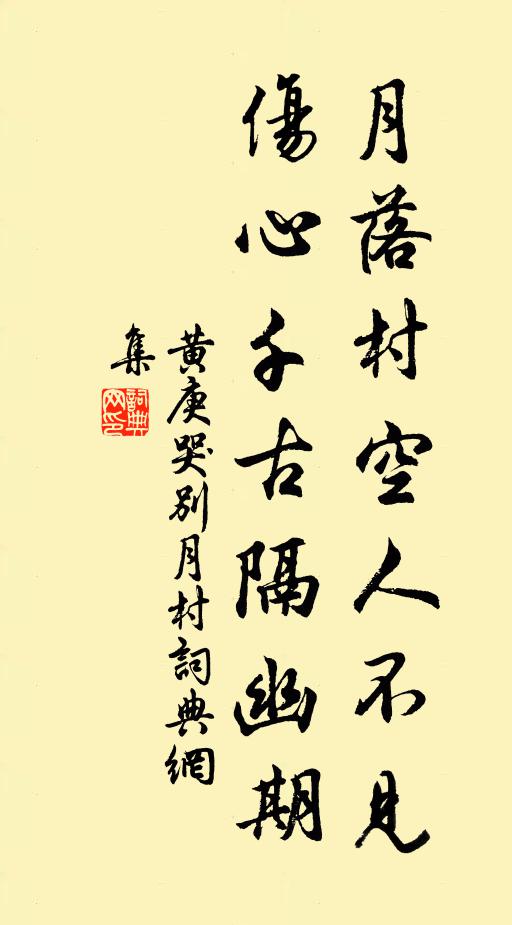 月落村空人不見
傷心千古隔幽期
黃庚哭別月村詞典網
集
詞典
网印